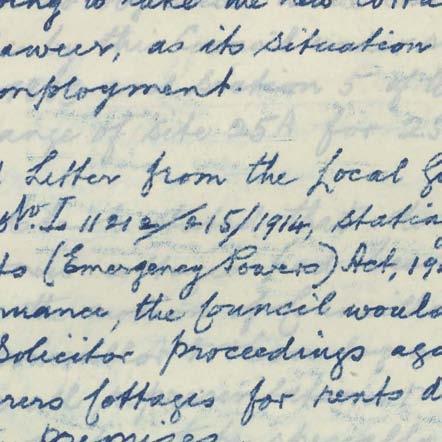 to take the new
, as its situation
employment.
Letter from the Local
No. I 11212/215/1914, stating
(Emergency Powers) Act, 19
the Council would
Solicitor proceedings aga
Cottages for rents d
premises